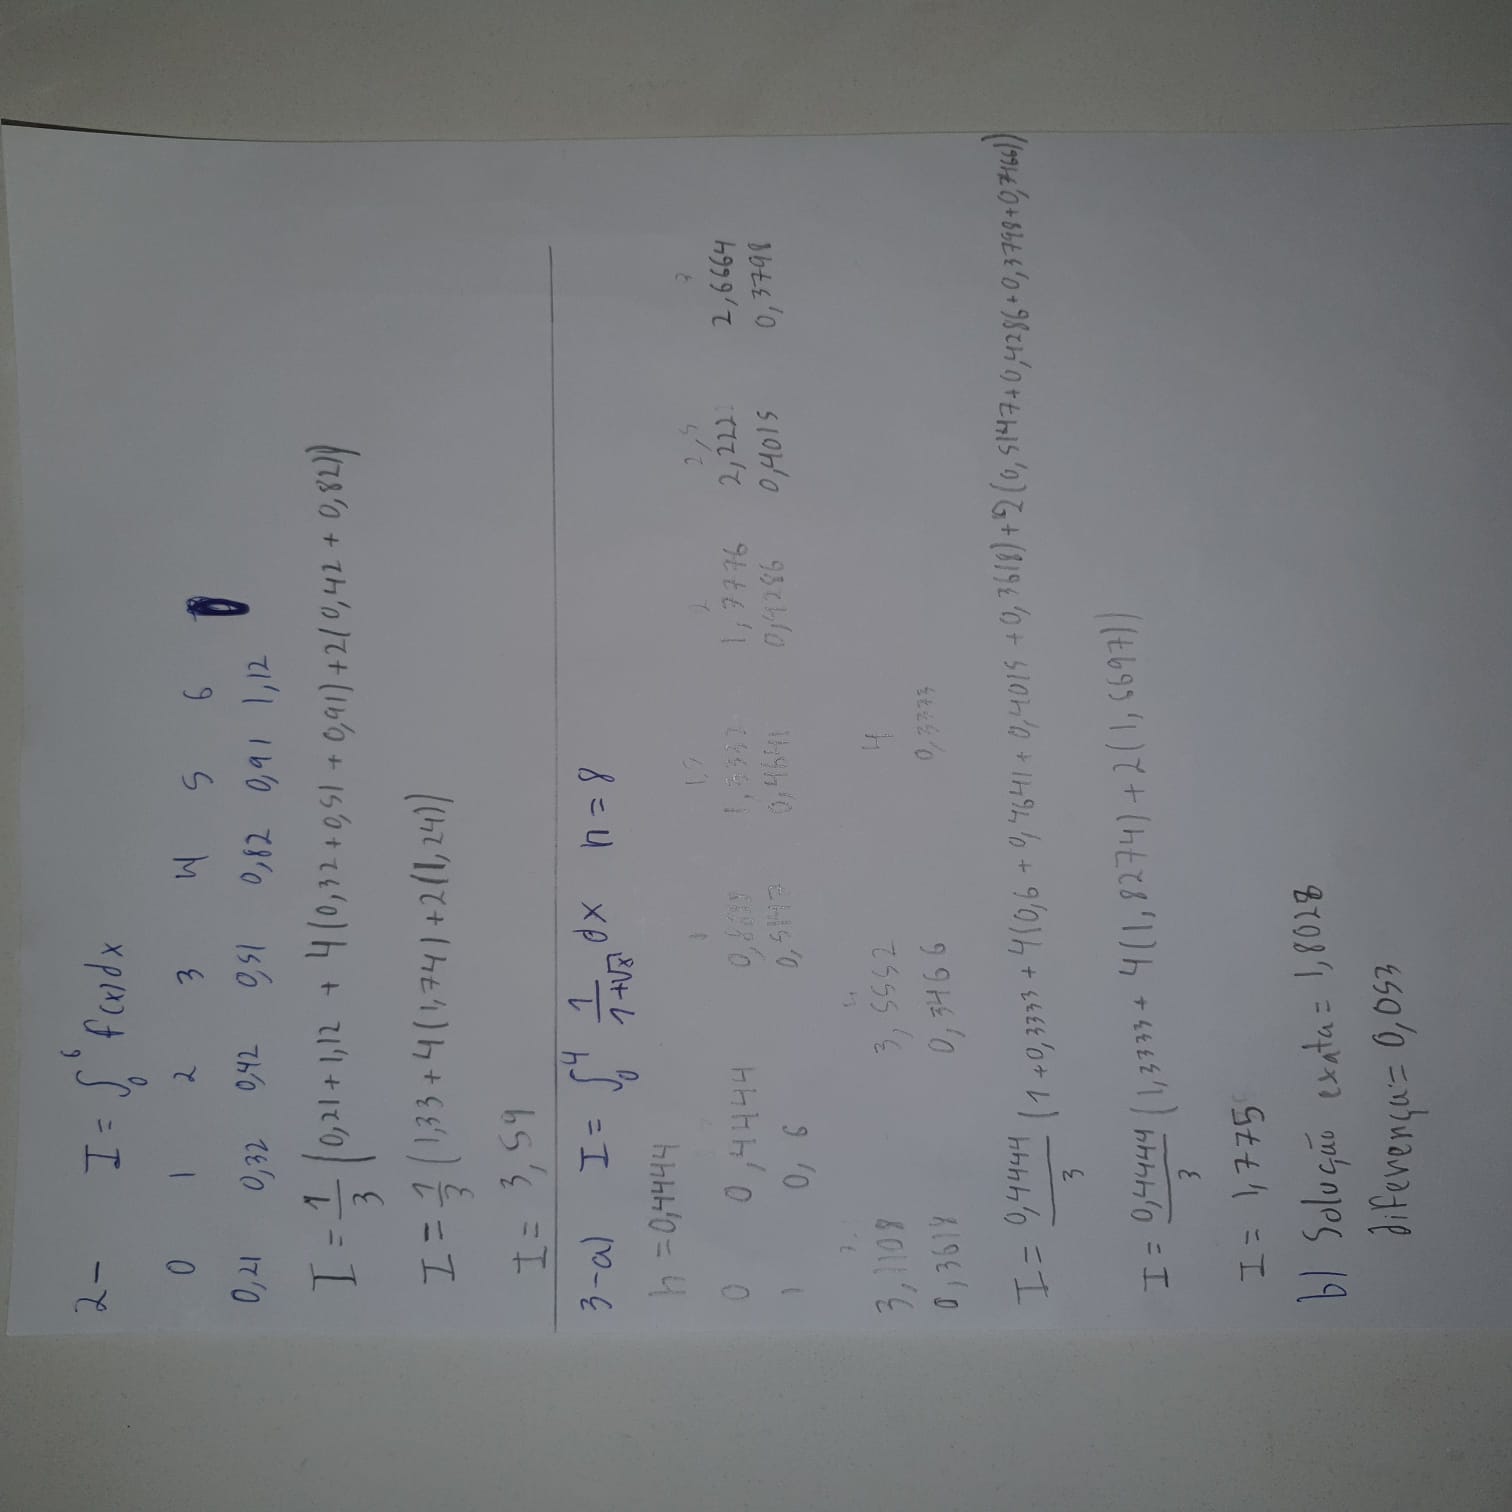 2- I = ∫₀⁶ f(x)dx
0 1 2 3 4 5 6
0,21 0,32 0,42 0,51 0,82 0,91 1,12
I = 1/3 (0,21+1,12 + 4(0,32+0,51+0,91)+2(0,42+0,82))
I = 1/3 (1,33+4(1,74)+2(1,24))
I = 3,59
3-a) I = ∫₀⁴ 1/(1+√x) dx n=8
h = 0,4444
1 1,5 2 2,5 3
0 0,4444 0,8888 1,3332 1,7776 2,222 2,6664
1 0,6 0,5147 0,4641 0,4286 0,4015 0,3798
3,1108 3,5552 4
0,3618 0,3466 0,3333
I = 0,4444/3 (1+0,3333+4(0,6+0,4641+0,4015+0,3618)+2(0,5147+0,4286+0,3798+0,3466))
I = 0,4444/3 (1,3333+4(1,8274)+2(1,6697))
I = 1,775
b) Solução exata = 1,8028
diferença = 0,053